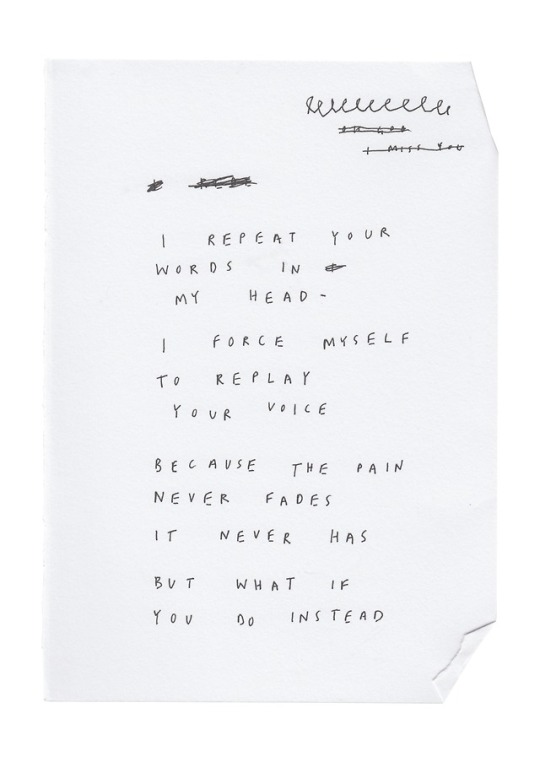 OH GOD
I MISS YOU
I REPEAT YOUR
WORDS IN
MY HEAD-
I FORCE MYSELF
TO REPLAY
YOUR VOICE
BECAUSE THE PAIN
NEVER FADES
IT NEVER HAS
BUT WHAT IF
YOU DO INSTEAD